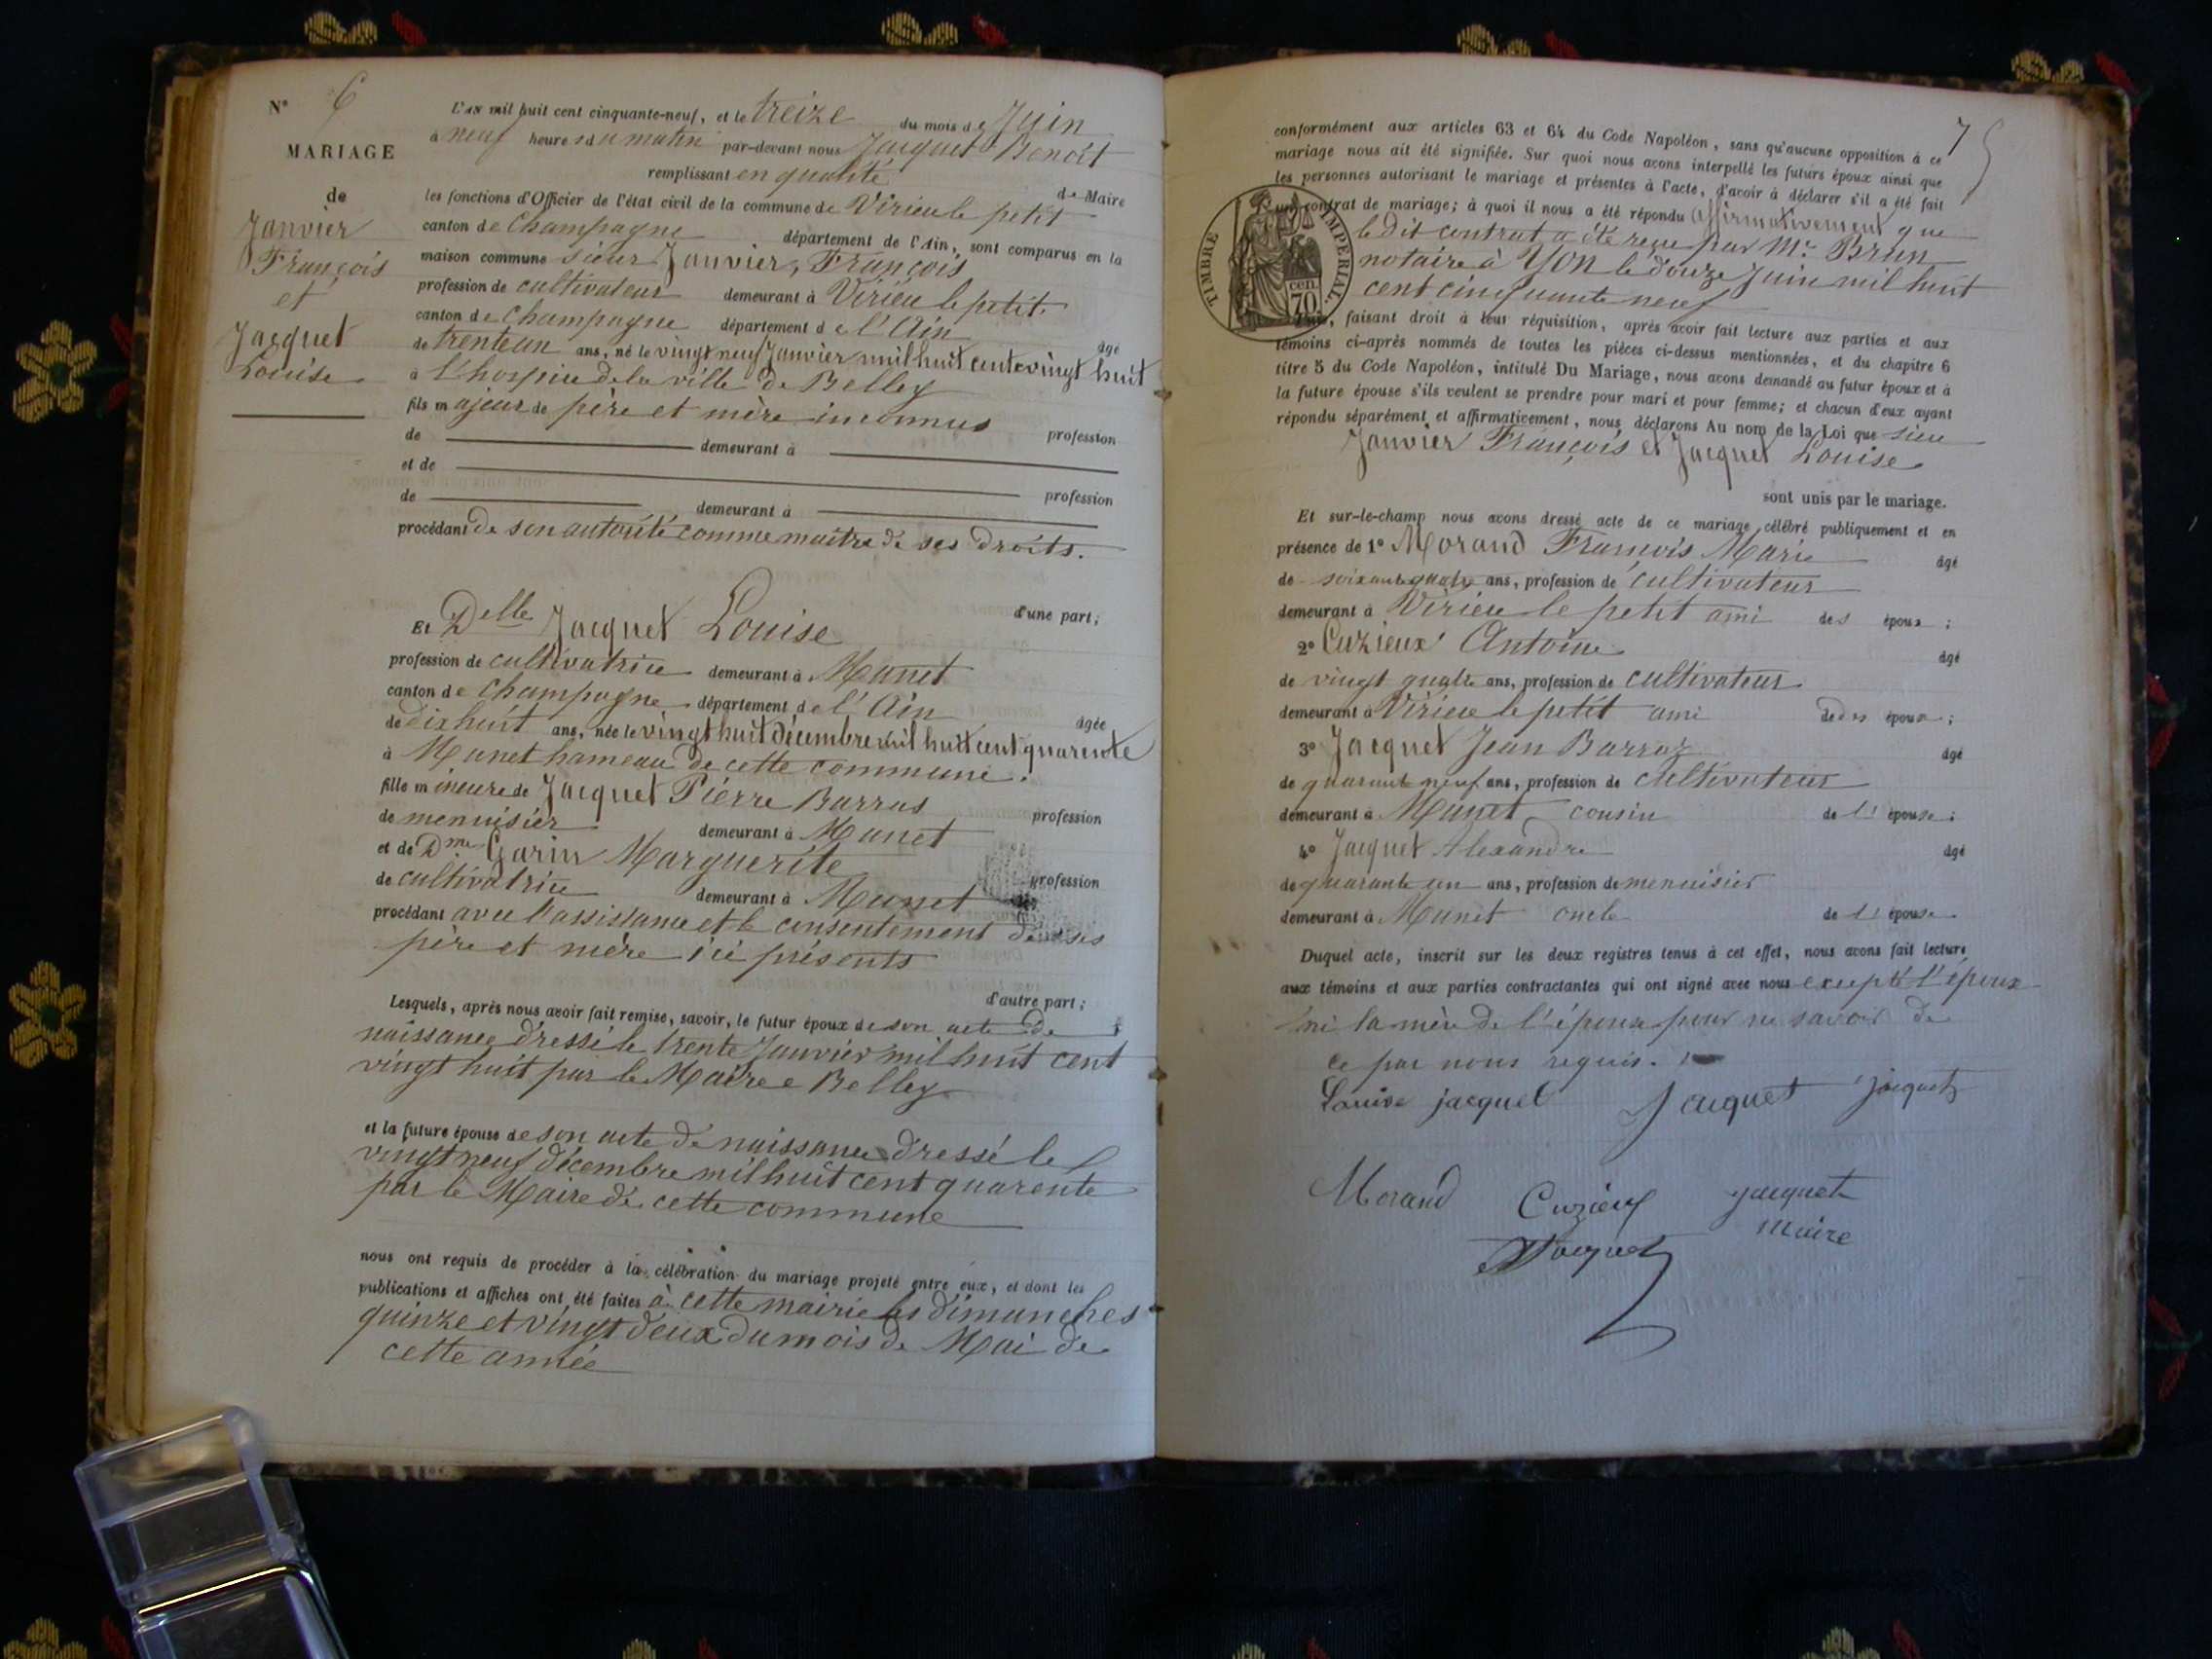 N° 6
MARIAGE
de
Janvier
François
et
Jacquet
Louise
L'AN mil huit cent cinquante-neuf, et le treize du mois de Juin
à neuf heures du matin par-devant nous Jacquet Benoît
remplissant en qualité de Maire
les fonctions d'Officier de l'état civil de la commune de Virieu le petit
canton de Champagne département de l'Ain, sont comparus en la
maison commune sieur Janvier, François
profession de cultivateur demeurant à Virieu le petit
canton de Champagne département de l'Ain âgé
de trente un ans, né le vingt neuf Janvier mil huit cent vingt huit
à l'hospice de la ville de Belley
fils majeur de père et mère inconnus profession
de demeurant à
et de profession
de demeurant à
procédant de son autorité comme maître de ses droits.
d'une part;
Et Delle Jacquet Louise
profession de cultivatrice demeurant à Munet
canton de Champagne département de l'Ain âgée
de dix huit ans, née le vingt huit décembre mil huit cent quarente
à Munet hameau de cette commune.
fille mineure de Jacquet Pierre Barras profession
de menuisier demeurant à Munet
et de Dme Garin Marguerite profession
de cultivatrice demeurant à Munet
procédant avec l'assistance et le consentement de ses
père et mère ici présents
d'autre part;
Lesquels, après nous avoir fait remise, savoir, le futur époux de son acte de
naissance dressé le trente Janvier mil huit cent
vingt huit par le Maire e Belley
et la future épouse de son acte de naissance dressé le
vingt neuf décembre mil huit cent quarente
par le Maire de cette commune
nous ont requis de procéder à la célébration du mariage projeté entre eux, et dont les
publications et affiches ont été faites à cette mairie les dimanches
quinze et vingt deux du mois de Mai de
cette année
7
conformément aux articles 63 et 64 du Code Napoléon, sans qu'aucune opposition à ce
mariage nous ait été signifiée. Sur quoi nous avons interpellé les futurs époux ainsi que
les personnes autorisant le mariage et présentes à l'acte, d'avoir à déclarer s'il a été fait
un contrat de mariage; à quoi il nous a été répondu affirmativement que
le dit contrat a été reçu par Me Brun
notaire à Yon le douze Juin mil huit
cent cinquante neuf
TIMBRE IMPÉRIAL.
70 cen.
faisant droit à leur réquisition, après avoir fait lecture aux parties et aux
témoins ci-après nommés de toutes les pièces ci-dessus mentionnées, et du chapitre 6
titre 5 du Code Napoléon, intitulé Du Mariage, nous avons demandé au futur époux et à
la future épouse s'ils veulent se prendre pour mari et pour femme; et chacun d'eux ayant
répondu séparément et affirmativement, nous déclarons Au nom de la Loi que sieur
Janvier François et Jacquet Louise
sont unis par le mariage.
Et sur-le-champ nous avons dressé acte de ce mariage célébré publiquement et en
présence de 1° Morand François Marie âgé
de soixante quatre ans, profession de cultivateur
demeurant à Virieu le petit ami des époux;
2° Cuzieux Antoine âgé
de vingt quatre ans, profession de cultivateur
demeurant à Virieu le petit ami des époux;
3° Jacquet Jean Barraz âgé
de quarante neuf ans, profession de cultivateur
demeurant à Munet cousin de l'épouse;
4° Jacquet Alexandre âgé
de quarante un ans, profession de menuisier
demeurant à Munet oncle de l'épouse.
Duquel acte, inscrit sur les deux registres tenus à cet effet, nous avons fait lecture
aux témoins et aux parties contractantes qui ont signé avec nous excepté l'époux
ni la mère de l'épouse pour ne savoir de
ce par nous requis.
Louise jacquet Jacquet jacquet
Morand Cuzieux jacquet
maire
Jacquet